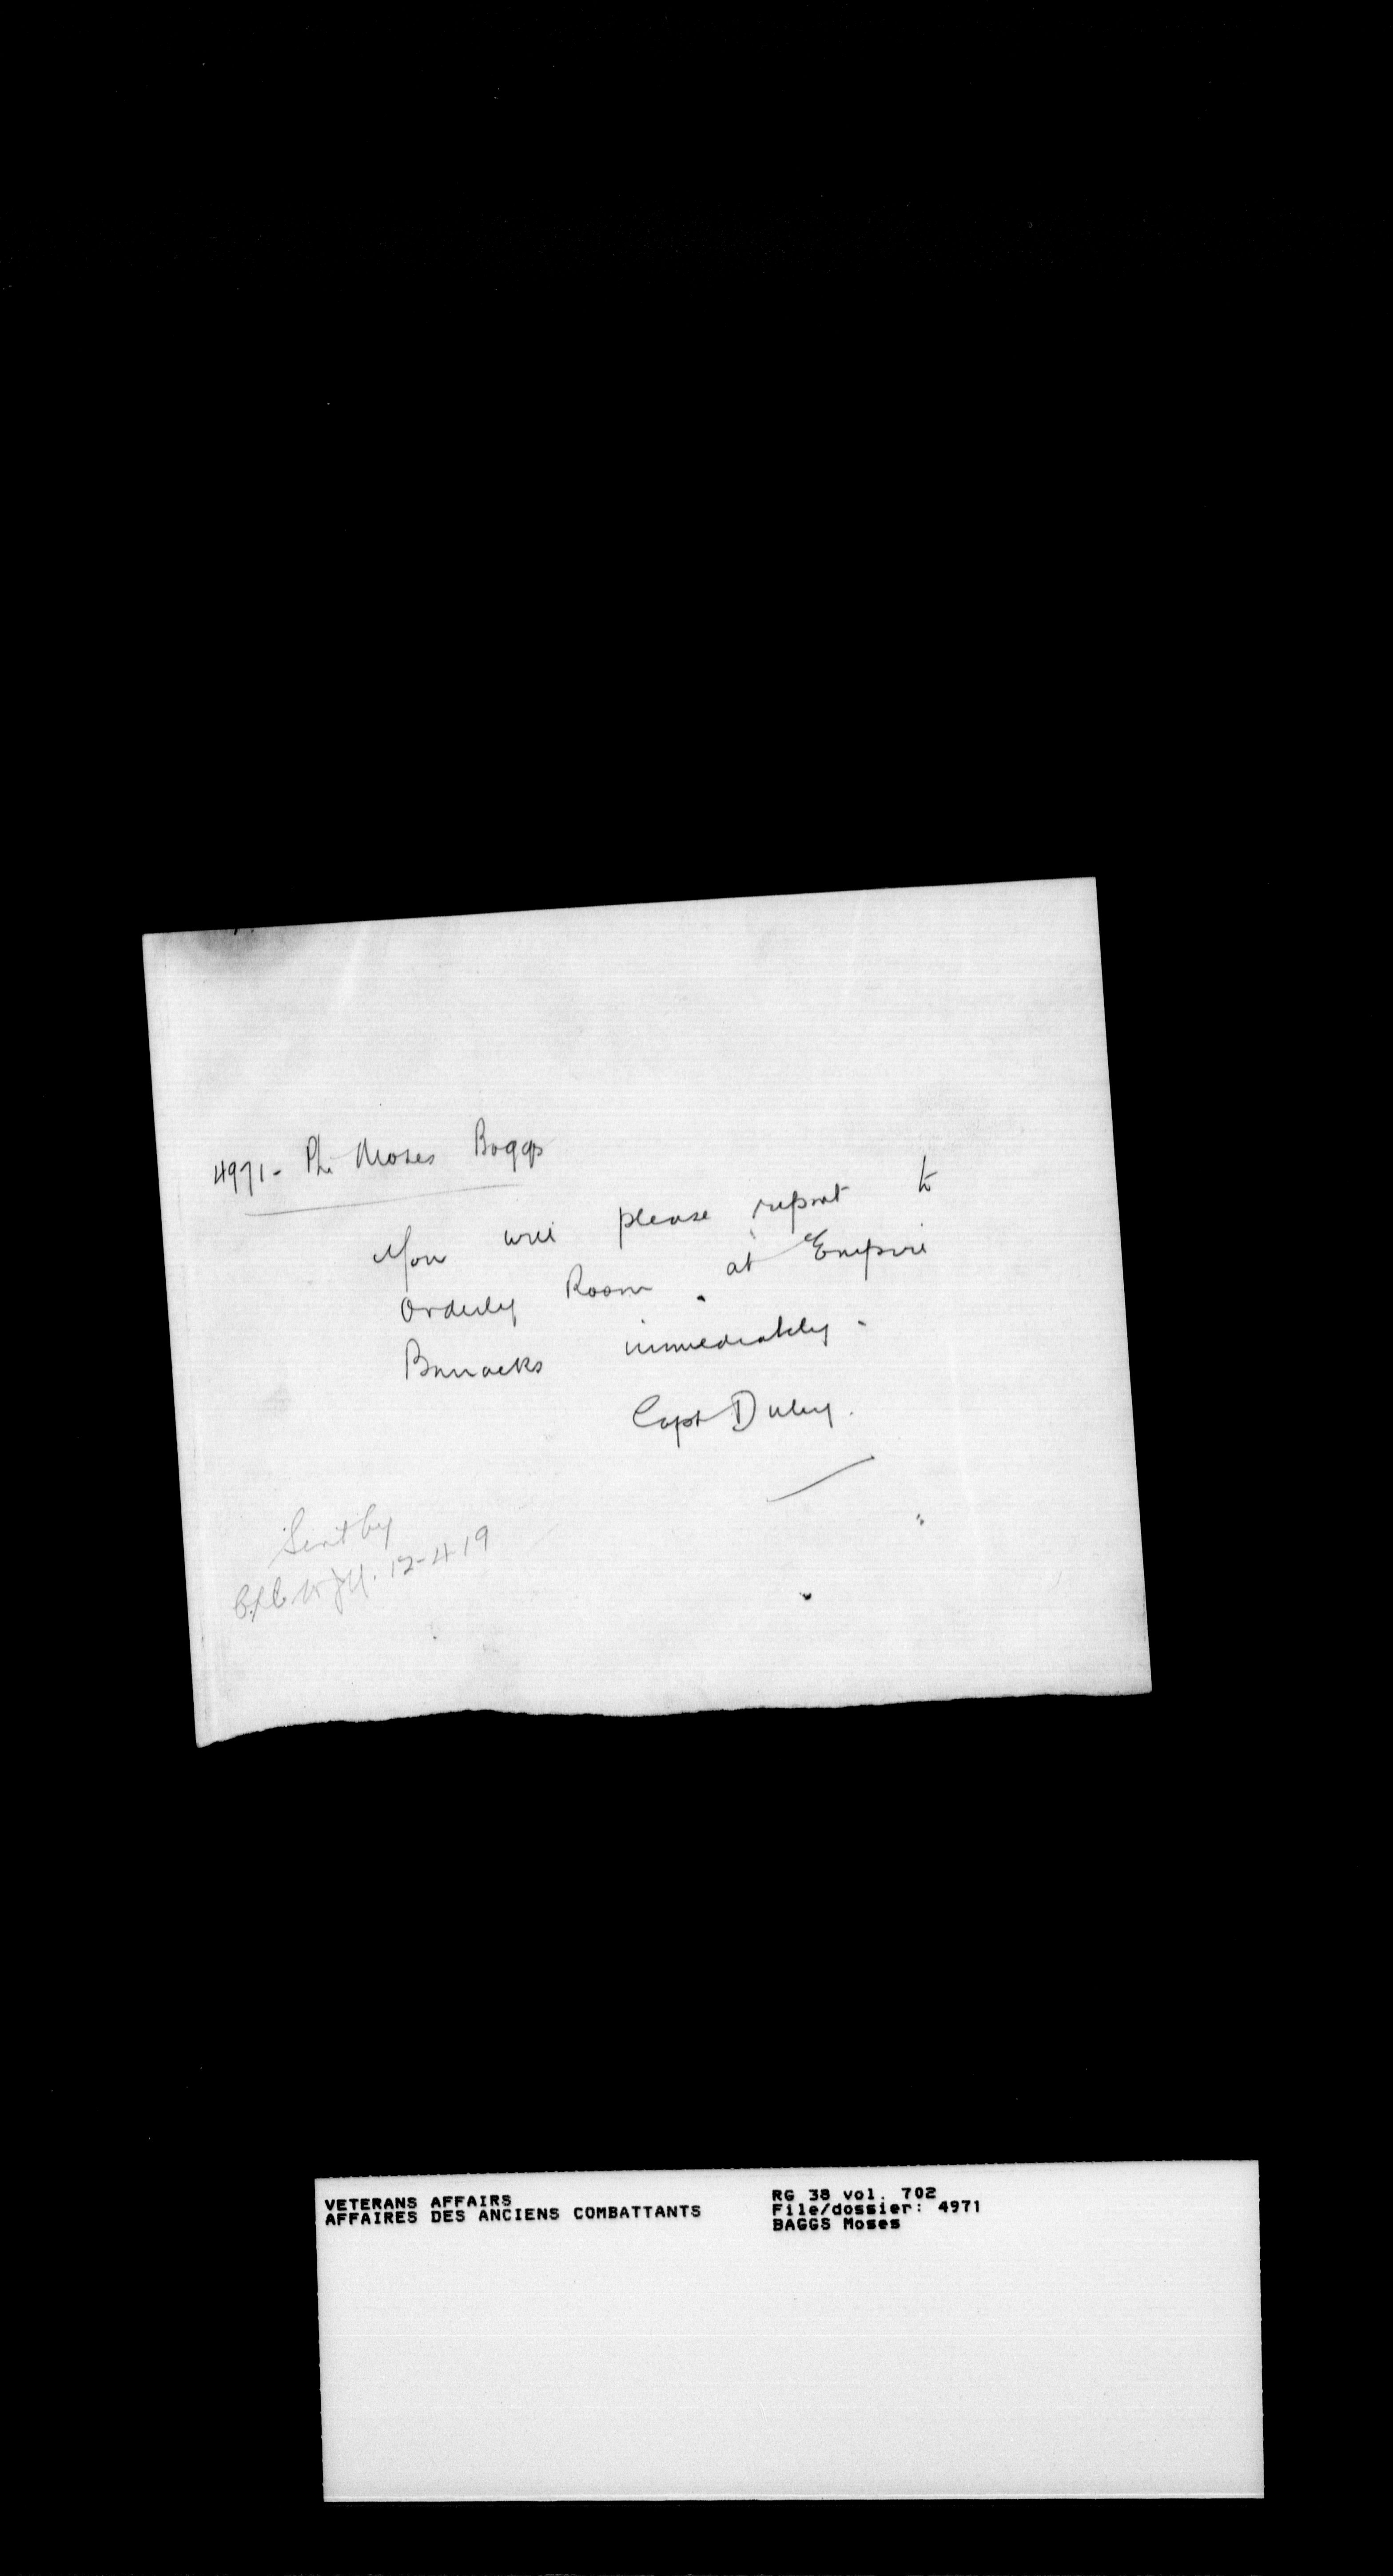 4971 - Pte Moses Baggs
You will please report to
Orderly Room at Empire
Barracks immediately.
Capt Duley.
Sent by
12-4-19
VETERANS AFFAIRS
AFFAIRES DES ANCIENS COMBATTANTS
RG 38 vol. 702
File/dossier: 4971
BAGGS Moses